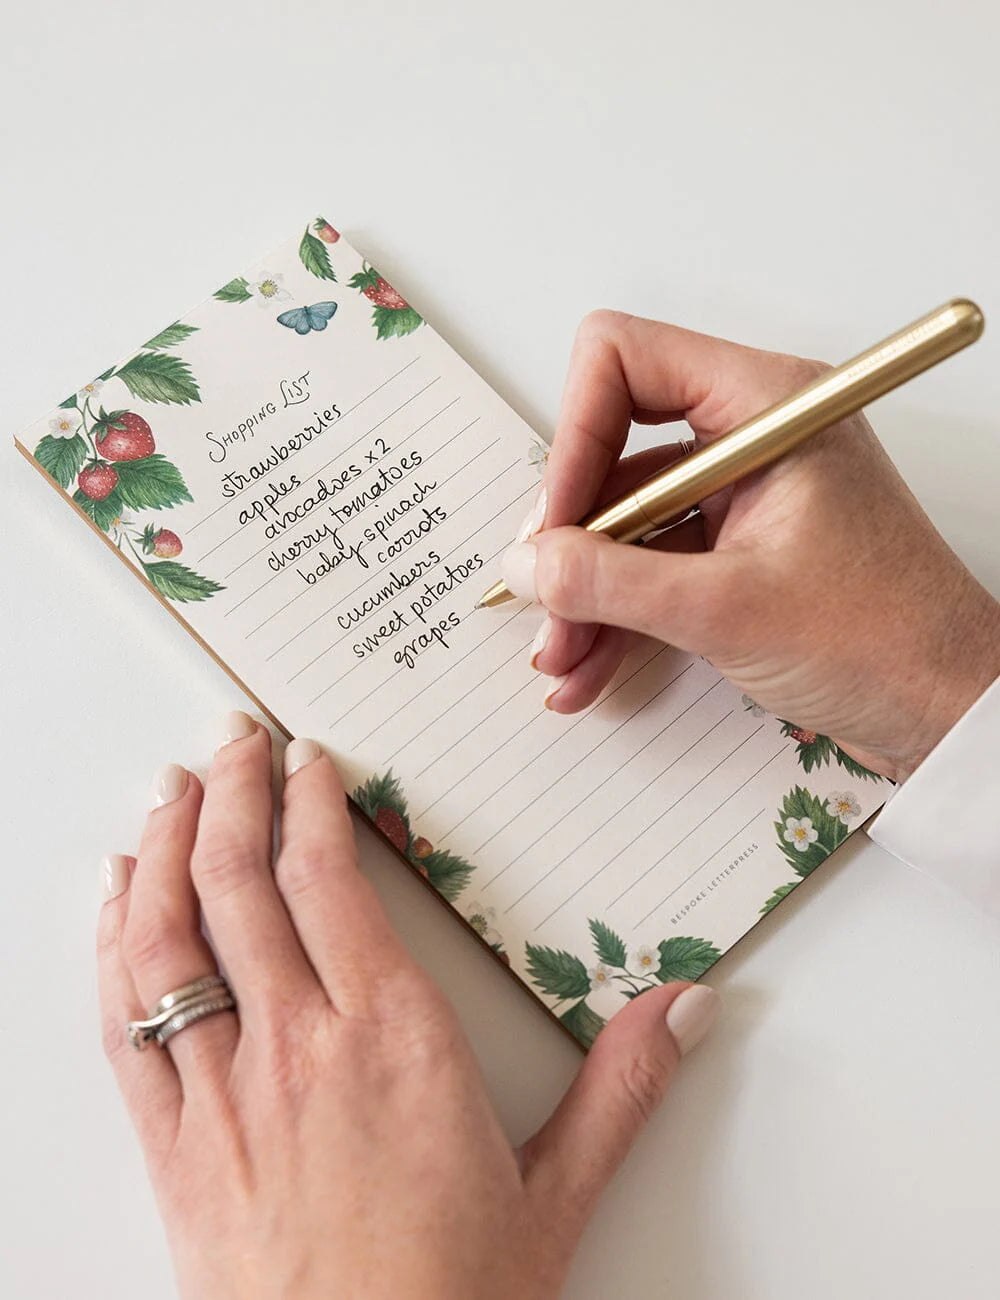 Shopping List
strawberries
apples
avocadoes x 2
cherry tomatoes
baby spinach
carrots
cucumbers
sweet potatoes
grapes
BESPOKE LETTERPRESS